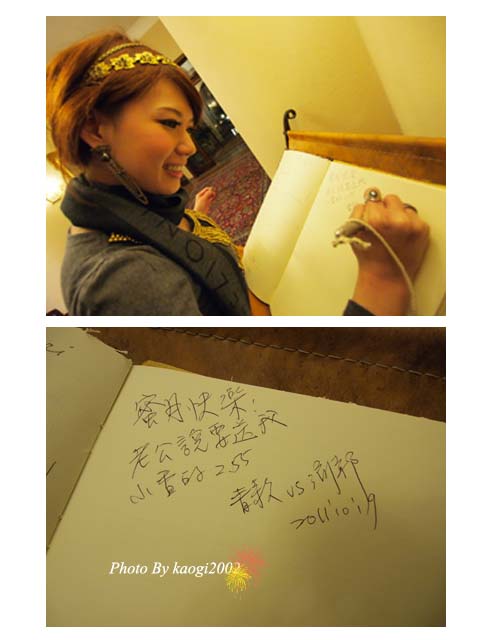 蜜月快樂!
老公說要送我
小香的 255
vs
2011'10'19
Photo By kaogi2002